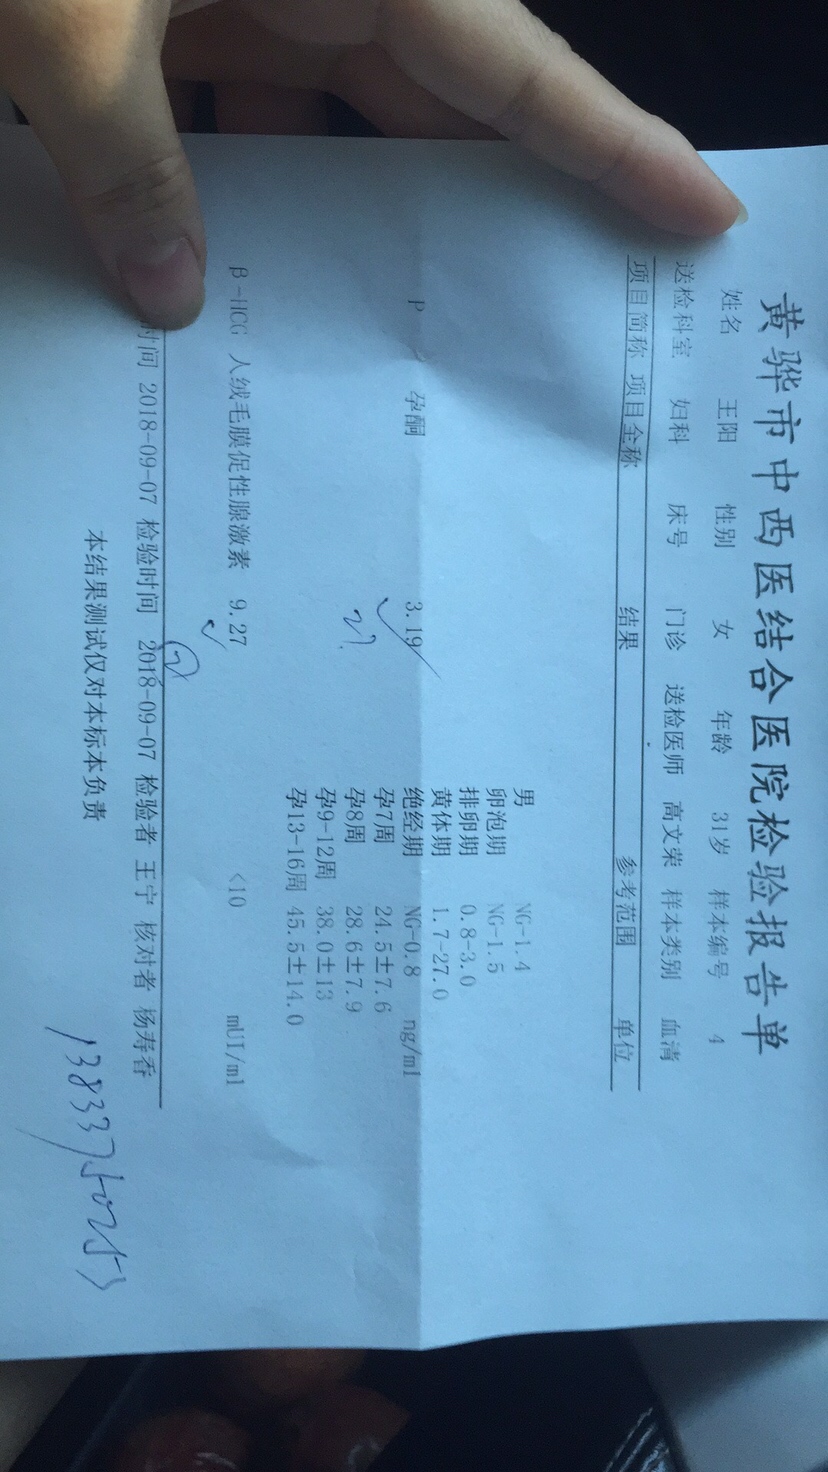 黄骅市中西医结合医院检验报告单
姓名 王阳 性别 女 年龄 31岁 样本编号 4
送检科室 妇科 床号 门诊 送检医师 高文荣 样本类别 血清
项目简称 项目全称 结果 参考范围 单位
男 NG-1.4
卵泡期 NG-1.5
排卵期 0.8-3.0
黄体期 1.7-27.0
P 孕酮 3.19 绝经期 NG-0.8 ng/ml
孕7周 24.5±7.6
孕8周 28.6±7.9
孕9-12周 38.0±13
孕13-16周 45.5±14.0
β-HCG 人绒毛膜促性腺激素 9.27 <10 mUI/ml
时间 2018-09-07 检验时间 2018-09-07 检验者 王宁 核对者 杨寿香
本结果测试仅对本标本负责